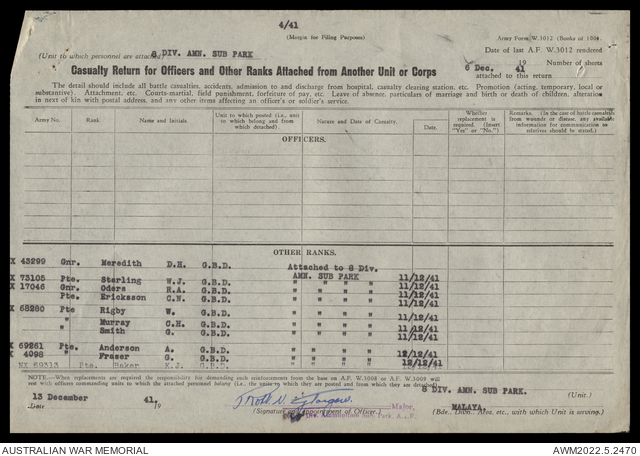 4/41
(Margin for Filing Purposes)
Army Form W.3012 (Books of 100).
(Unit to which personnel are attached) 8 DIV. AMN. SUB PARK
Date of last A.F. W.3012 rendered
6 Dec. 19 41 Number of sheets
Casualty Return for Officers and Other Ranks Attached from Another Unit or Corps
attached to this return
The detail should include all battle casualties, accidents, admission to and discharge from hospital, casualty clearing station, etc. Promotion (acting, temporary, local or
substantive). Attachment, etc. Courts-martial, field punishment, forfeiture of pay, etc. Leave of absence, particulars of marriage and birth or death of children, alteration
in next of kin with postal address, and any other items affecting an officer's or soldier's service.
Army No. Rank Name and Initials. Unit to which posted (i.e., unit to which belong and from which detached). Nature and Date of Casualty. Date. Whether replacement is required. (Insert "Yes" or "No.") Remarks. (In the case of battle casualties from wounds or disease, any available information for communication to relatives should be stated.)
OFFICERS.
OTHER RANKS.
X 43299 Gnr. Meredith D.H. G.B.D. Attached to 8 Div.
AMN. SUB PARK 11/12/41
X 73105 Pte. Starling W.J. G.B.D. " " " " 11/12/41
X 17046 Gnr. Oders R.A. G.B.D. " " " " 11/12/41
Pte. Ericksson C.N. G.B.D. " " " " 11/12/41
X 68280 Pte Rigby W. G.B.D. " " " " 11/12/41
" Murray C.H. G.B.D. " " " " 11/12/41
" Smith G. G.B.D. " " " " 11/12/41
X 69261 Pte. Anderson A. G.B.D. " " " " 12/12/41
X 4098 " Fraser G. G.B.D. " " " " 12/12/41
NX 69313 Pte. Baker K.J. G.B.D. " " " " 12/12/41
NOTE.—When replacements are required the responsibility for demanding such reinforcements from the base on A.F. W.3008 or A.F. W.3009 will
rest with officers commanding units to which the attached personnel belong (i.e., the units to which they are posted and from which they are detached).
8 DIV. AMN. SUB PARK. (Unit.)
13 December 41.
Date 19
Major,
(Signature and Appointment of Officer.)
Div. Ammunition Sub. Park A.I.F.
MALAYA.
(Bde., Divn., Area, etc., with which Unit is serving.)
AUSTRALIAN WAR MEMORIAL
AWM2022.5.2470